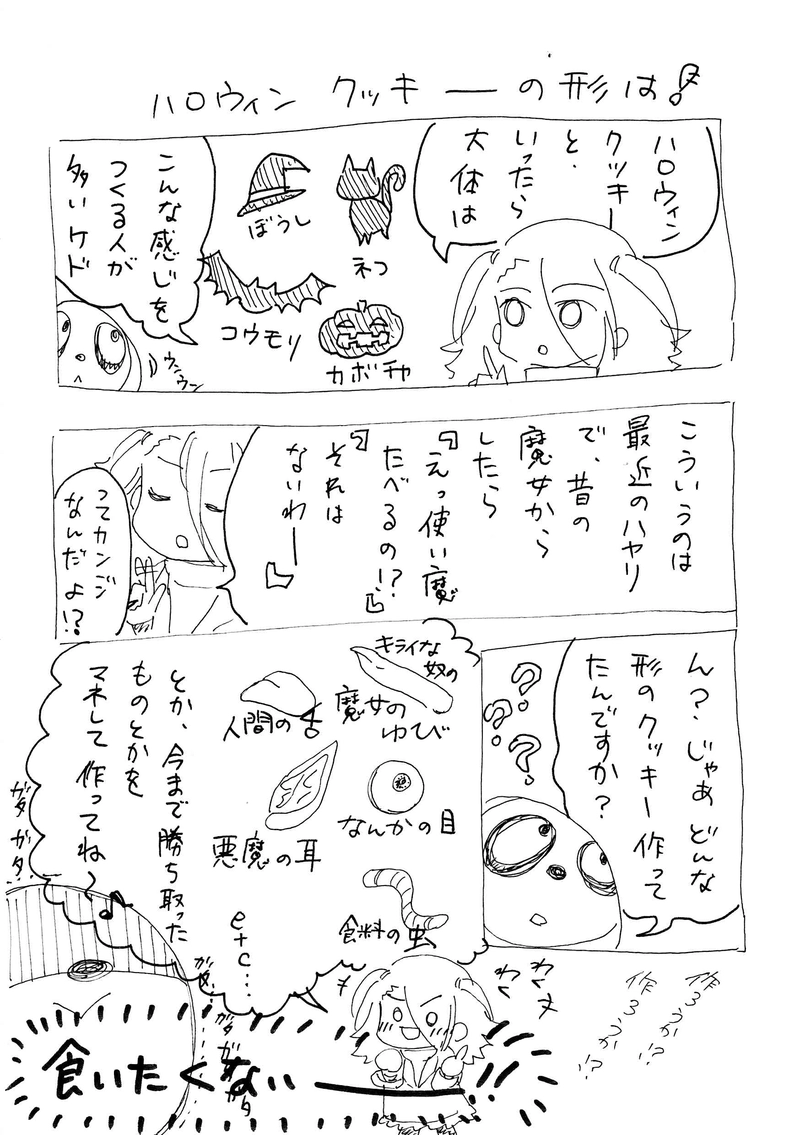 ハロウィン クッキーの形は!?
ハロウィン
クッキー
と、
いったら
大体は
ネコ
ぼうし
コウモリ
カボチャ
こんな感じを
つくる人が
多いケド
ウンウン
こういうのは
最近のハヤリ
で、昔の
魔女から
したら
『えっ使い魔
たべるの!?』
『それは
ないわー』
ってカンジ
なんだよ!?
ん?、じゃあどんな
形のクッキー作って
たんですか?
???
キライな奴の
魔女の
ゆび
人間の舌
なんかの目
悪魔の耳
食料の虫
etc...
とか、今まで勝ち取った
ものとかを
マネして作ってね〜♪
ガタガタ
ガタ
ガタガタ
ガタ
わくわく
作ろうか!?
作ろうか!?
食いたくないーー!!